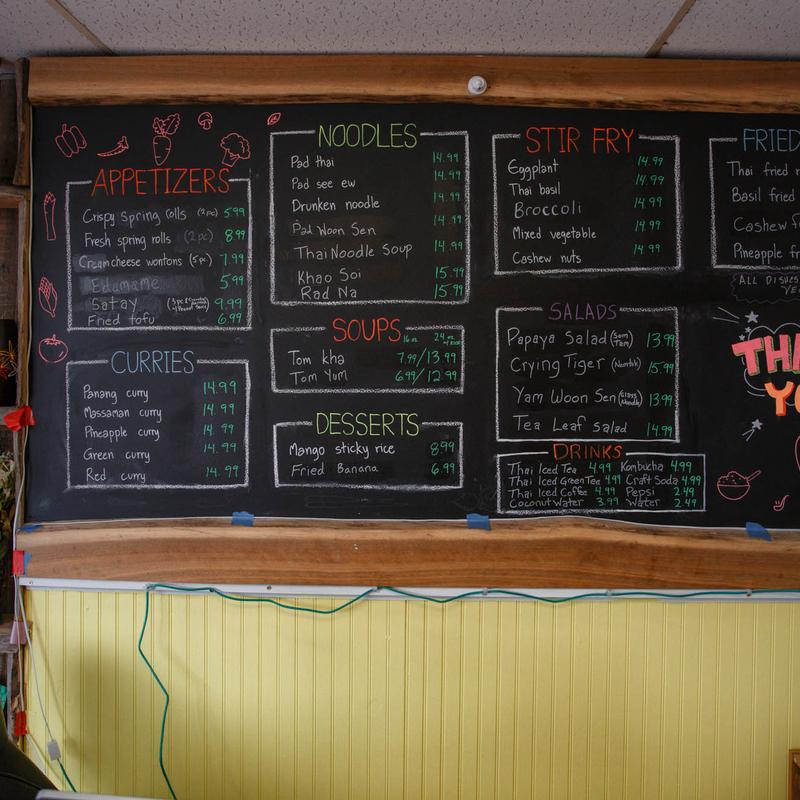 APPETIZERS
Crispy Spring rolls (2pc) 5.99
Fresh spring rolls (2pc) 8.99
Creamcheese wontons (5pc) 7.99
Edamame 5.99
Satay 9.99
Fried tofu 6.99
CURRIES
Panang curry 14.99
Massaman curry 14.99
Pineapple curry 14.99
Green curry 14.99
Red curry 14.99
NOODLES
Pad thai 14.99
Pad see ew 14.99
Drunken noodle 14.99
Pad Woon Sen 14.99
Thai Noodle Soup 14.99
Khao Soi 15.99
Rad Na 15.99
SOUPS 16 oz 24 oz
Tom kha 7.99/13.99
Tom Yum 6.99/12.99
DESSERTS
Mango sticky rice 8.99
Fried Banana 6.99
STIR FRY
Eggplant 14.99
Thai basil 14.99
Broccoli 14.99
Mixed vegetable 14.99
Cashew nuts 14.99
SALADS
Papaya Salad (Som Tam) 13.99
Crying Tiger 15.99
Yam Woon Sen (Glass Noodle) 13.99
Tea Leaf Salad 14.99
DRINKS
Thai Iced Tea 4.99 Kombucha 4.99
Thai Iced Green Tea 4.99 Craft Soda 4.99
Thai Iced Coffee 4.99 Pepsi 2.49
Coconut Water 3.99 Water 2.49
FRIED
Thai fried r
Basil fried
Cashew f
Pineapple fr
ALL DISHES